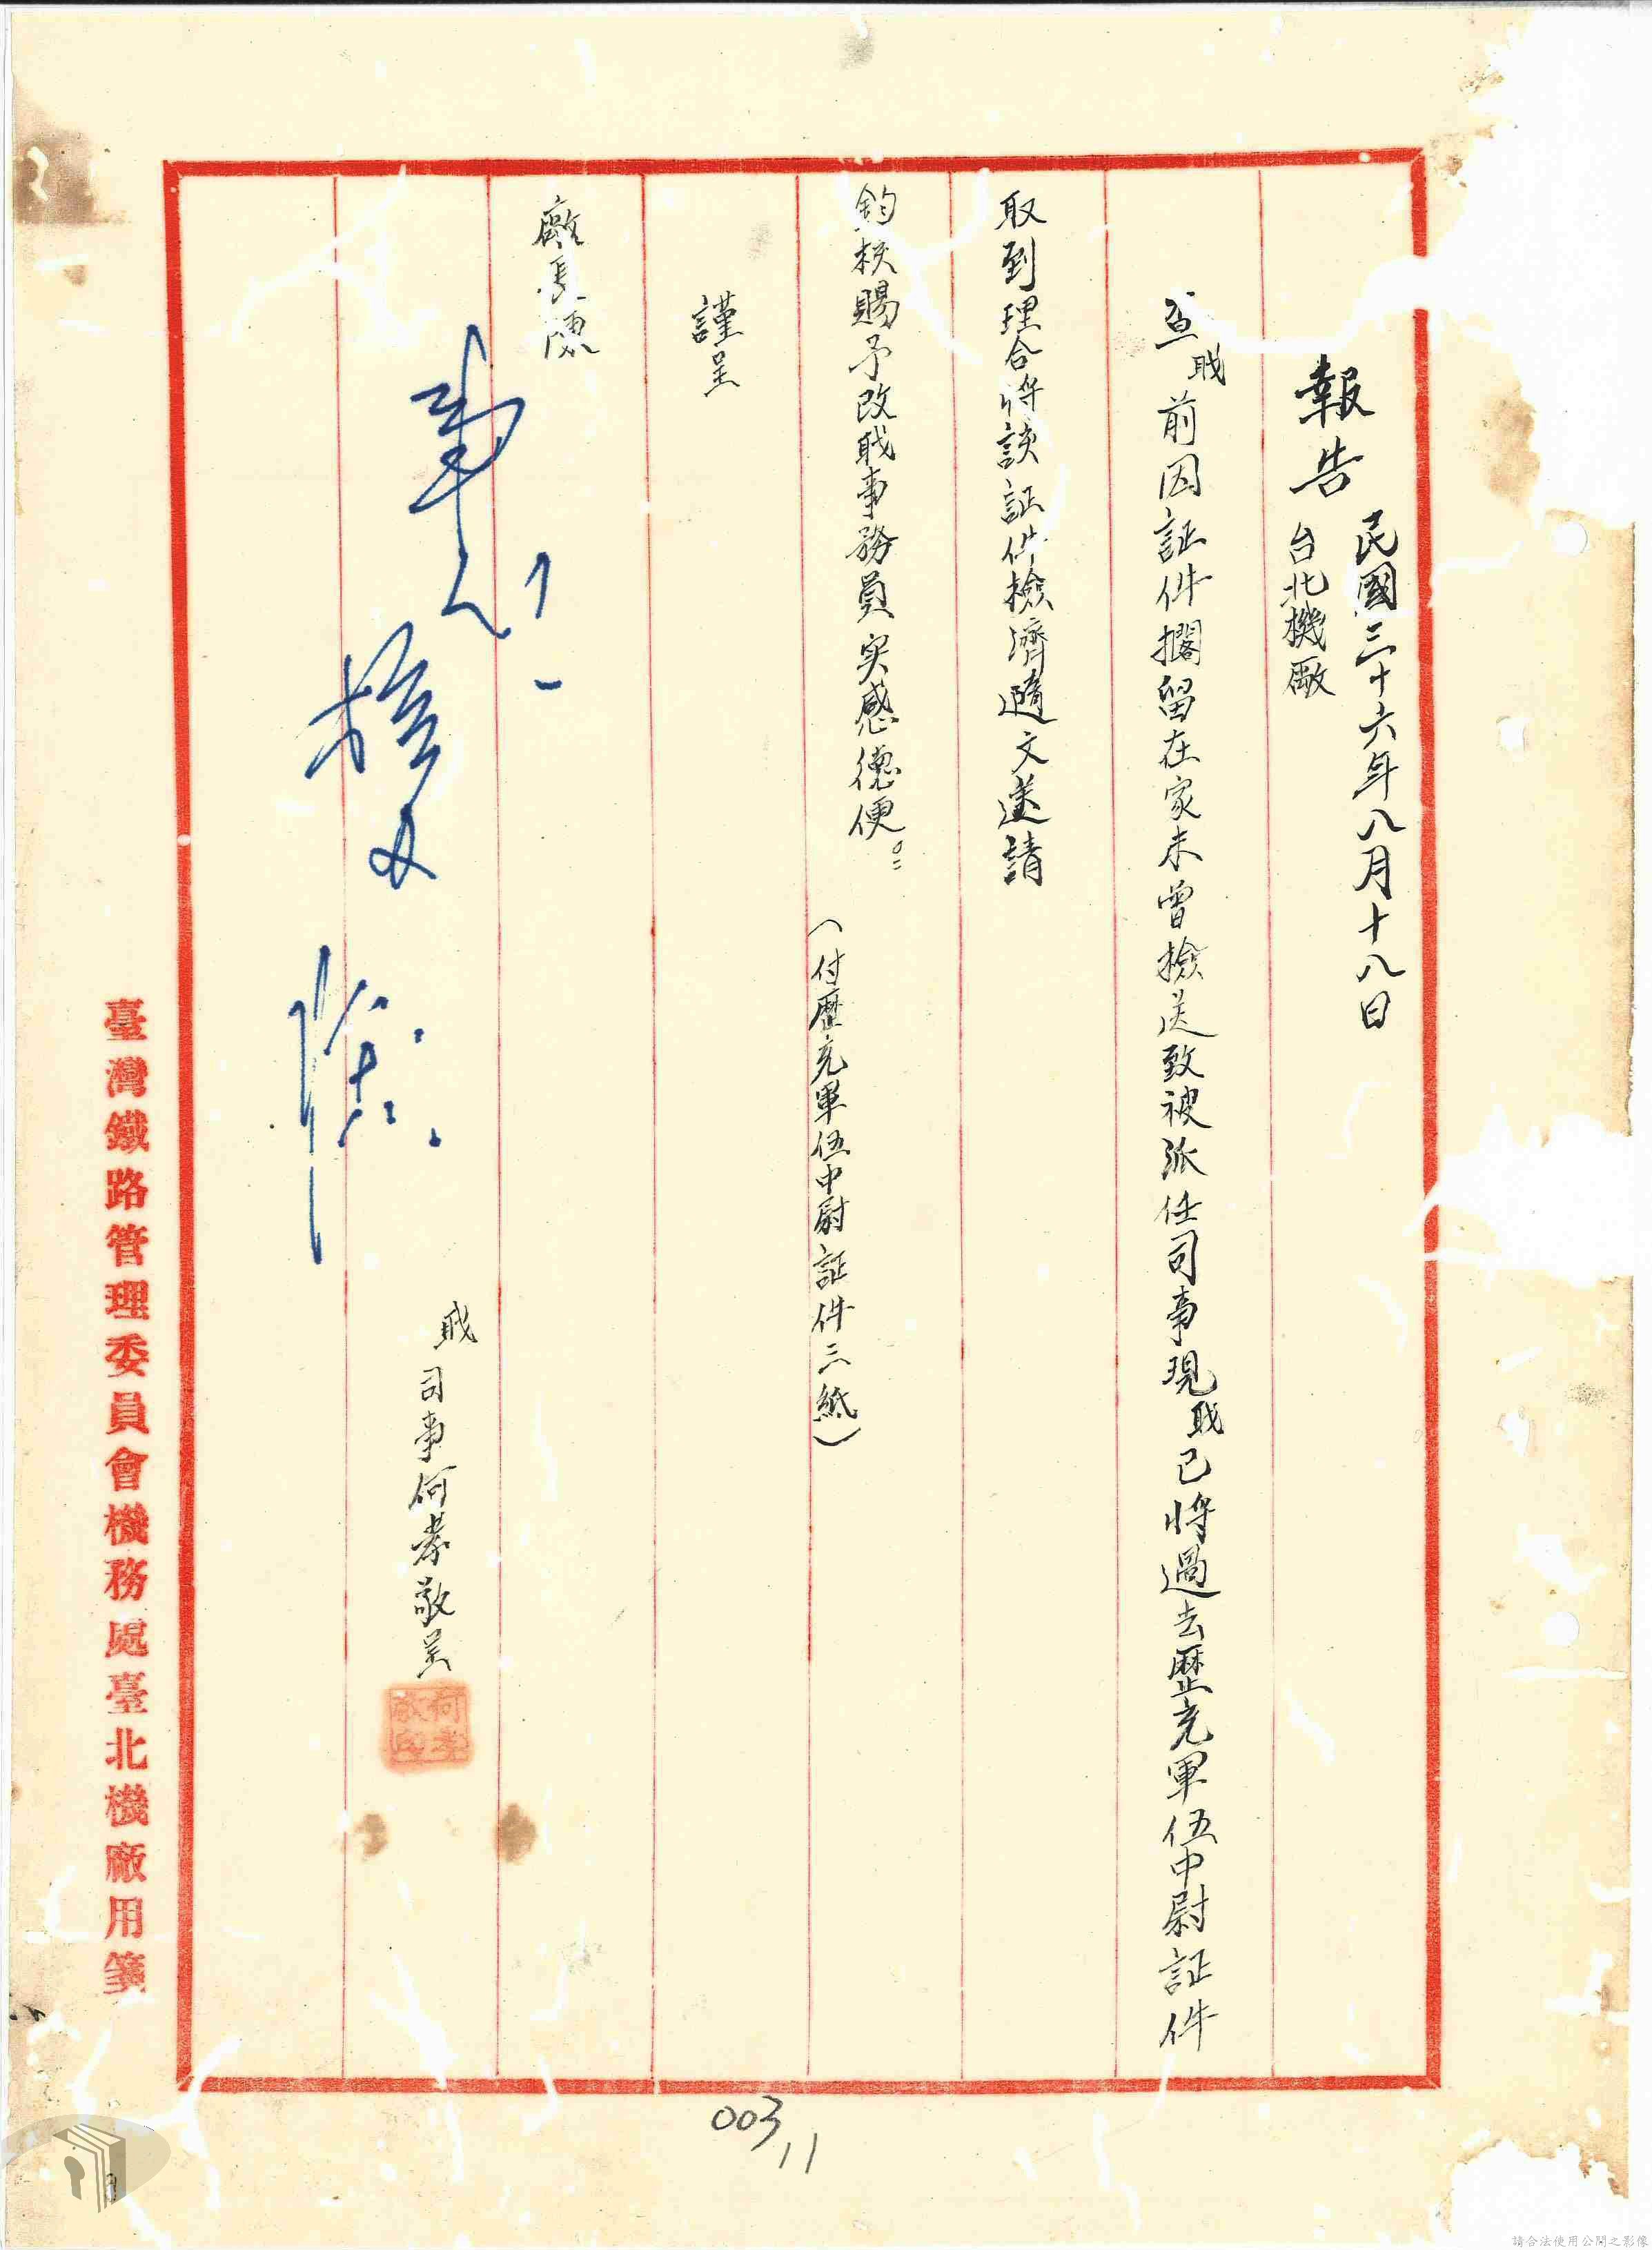 報告
民國三十六年八月十八日
台北機廠
查職前因証件擱留在家未曾檢送致被派任司事現職已將過去歷充軍伍中尉証件
取到理合將該証件檢濟隨文送請
鈞核賜予改職事務員実感德便
(付歷充軍伍中尉証件三紙)
謹呈
廠長陳
職司事何孝敬呈
臺灣鐵路管理委員會機務處臺北機廠用箋
003
11
請合法使用公開之影像